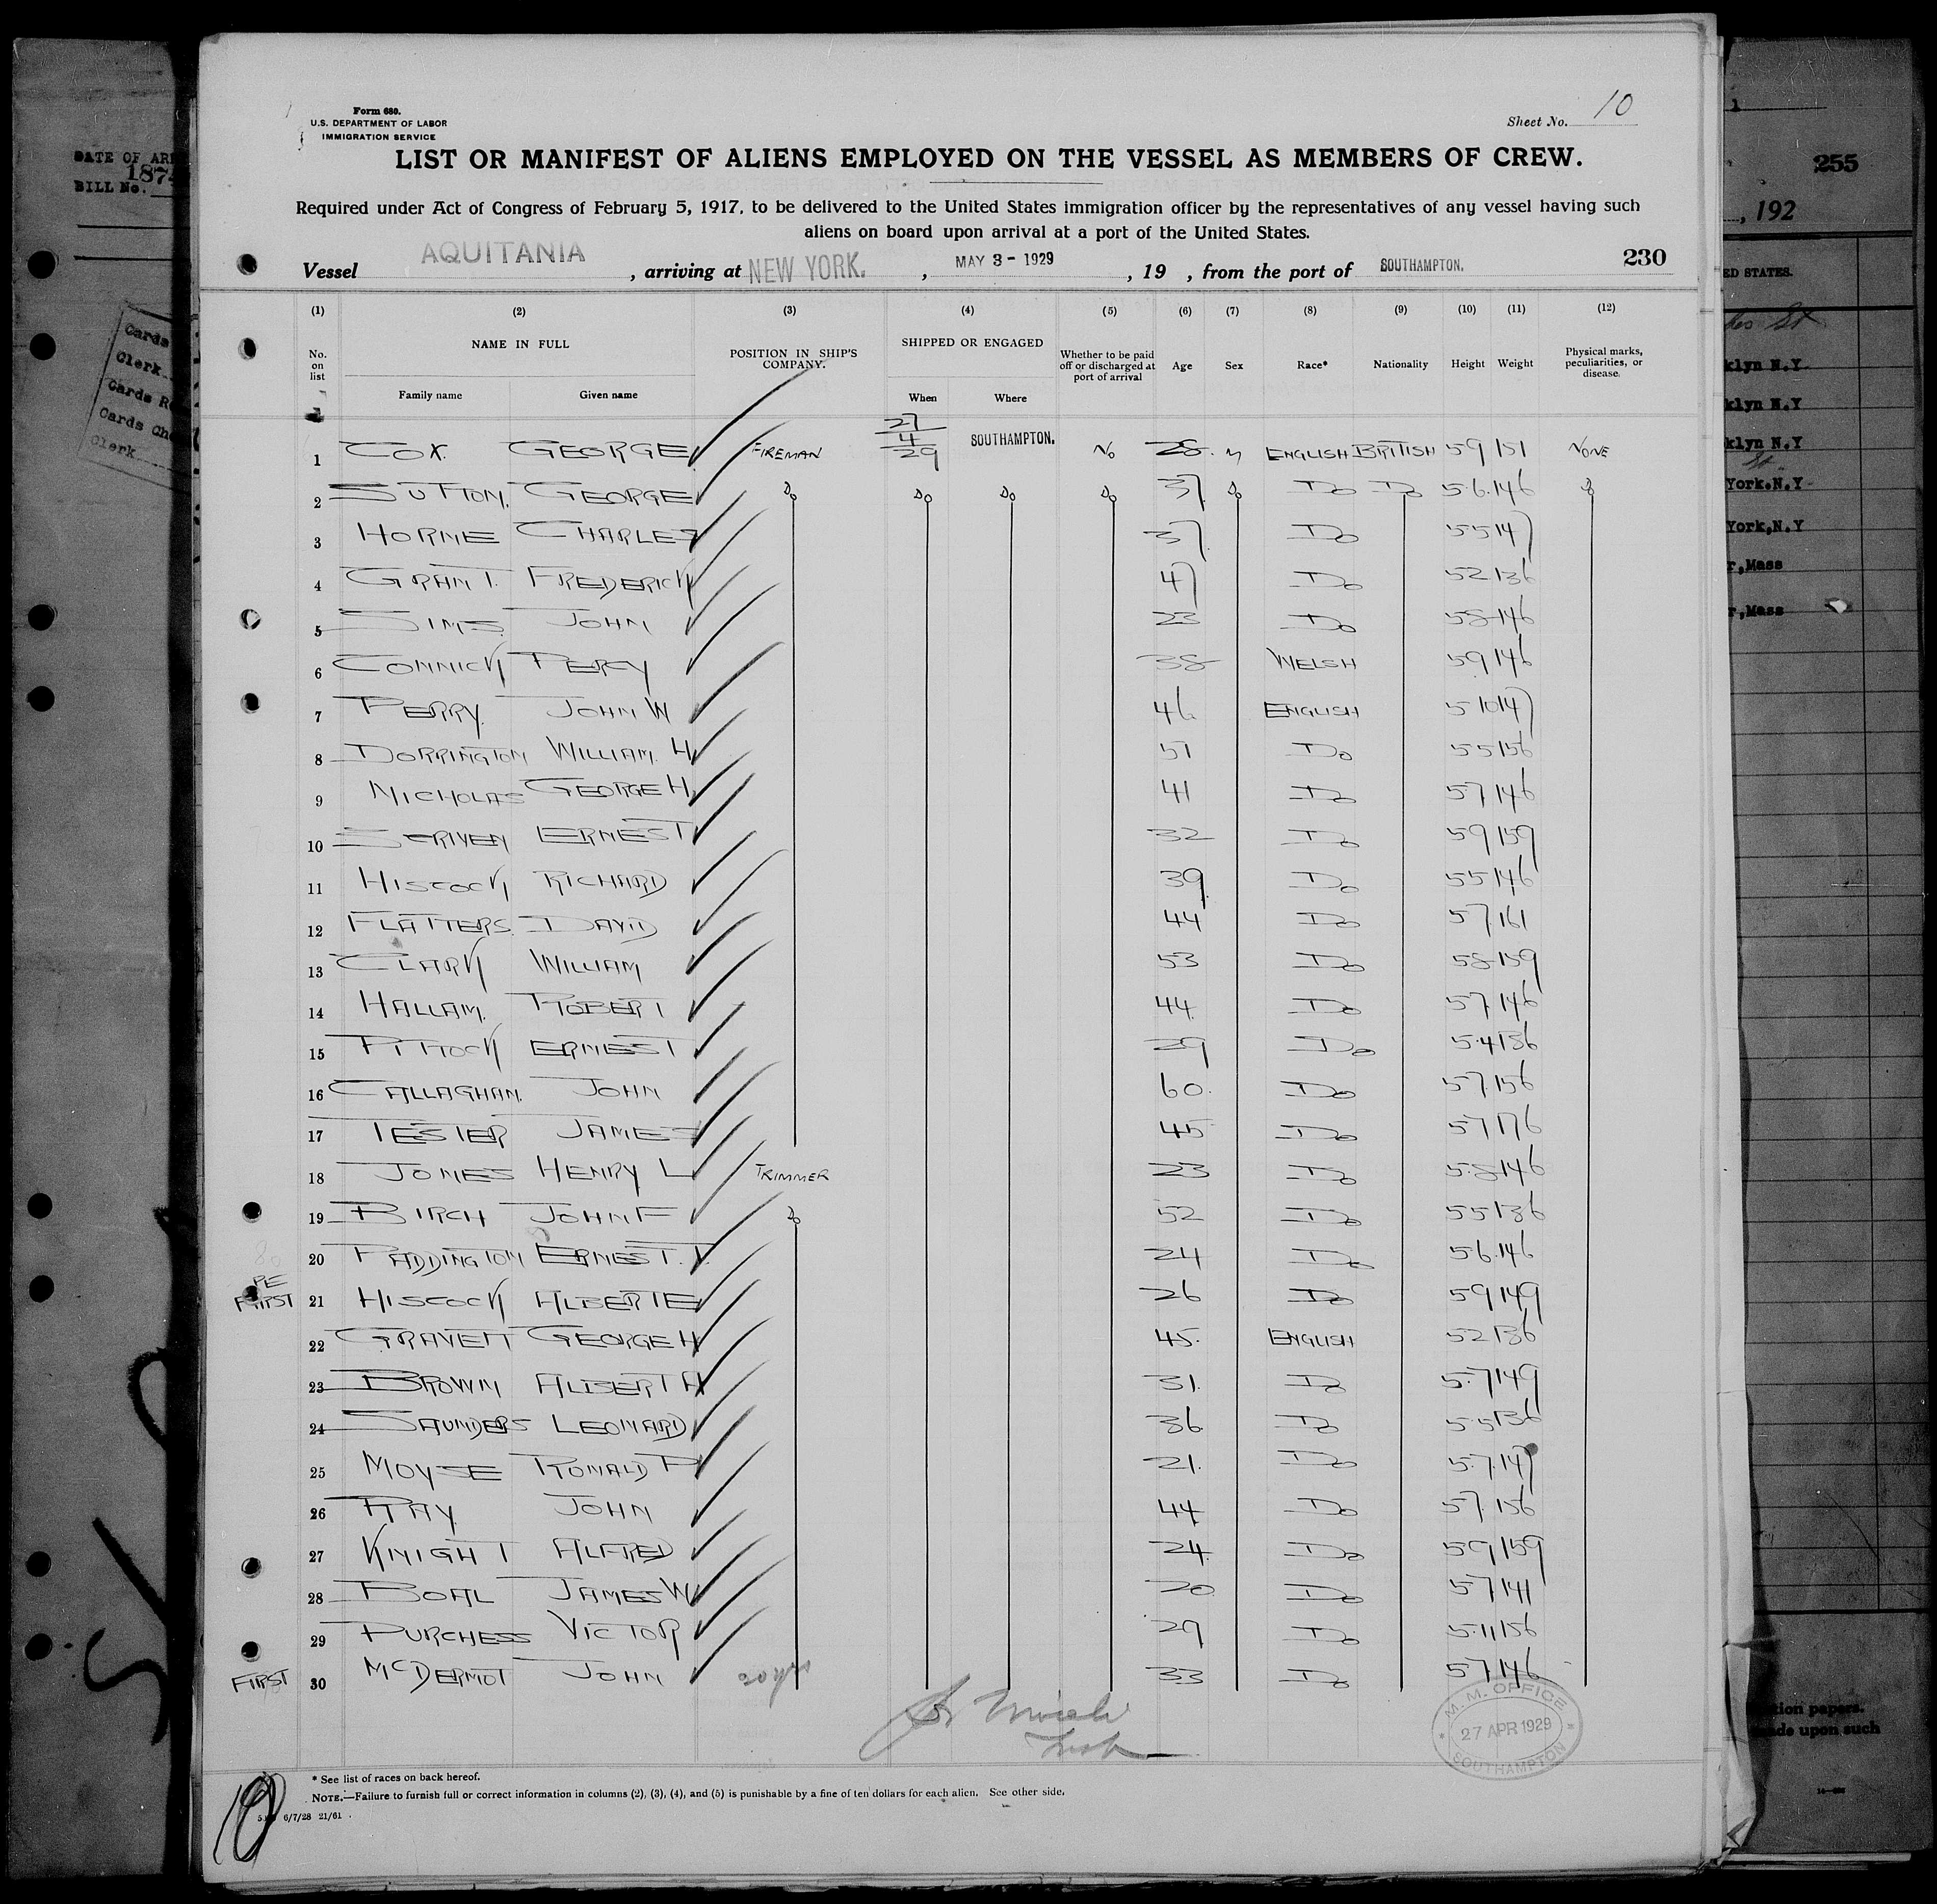 Form 680.
U.S. DEPARTMENT OF LABOR
IMMIGRATION SERVICE
Sheet No. 10
LIST OR MANIFEST OF ALIENS EMPLOYED ON THE VESSEL AS MEMBERS OF CREW.
Required under Act of Congress of February 5, 1917, to be delivered to the United States immigration officer by the representatives of any vessel having such
aliens on board upon arrival at a port of the United States.
Vessel AQUITANIA, arriving at NEW YORK., MAY 3 - 1929, 19 , from the port of SOUTHAMPTON. 230
(1) (2) (3) (4) (5) (6) (7) (8) (9) (10) (11) (12)
No. on list NAME IN FULL Family name Given name POSITION IN SHIP'S COMPANY. SHIPPED OR ENGAGED When Where Whether to be paid off or discharged at port of arrival Age Sex Race* Nationality Height Weight Physical marks, peculiarities, or disease.
1 COX. GEORGE FIREMAN 27/4/29 SOUTHAMPTON. No 28. M ENGLISH BRITISH 59 151 NONE
2 SUTTON. GEORGE Do Do Do Do 37 Do Do Do 5.6. 146 Do
3 HORNE CHARLES 37 Do 55 147
4 GRANT. FREDERICK 47 Do 52 136
5 SIMS. JOHN 23 Do 58 146
6 CONNICK PERCY 38 WELSH 59 146
7 PERRY. JOHN W 46 ENGLISH 5 10 147
8 DORRINGTON WILLIAM. H 51 Do 55 156
9 NICHOLAS GEORGE H. 41 Do 57 146
10 SCRIVEN ERNEST 32 Do 59 159
11 HISCOCK RICHARD 39 Do 55 146
12 FLATTERS. DAVID 44 Do 57 161
13 CLARK WILLIAM 53 Do 58 159
14 HALLAM. ROBERT 44 Do 57 146
15 PITTOCK ERNEST 29 Do 5.4 136
16 CALLAGHAN. JOHN 60. Do 57 156
17 TESTER JAMES 45 Do 57 176
18 JONES HENRY L TRIMMER 23 Do 5.8 146
19 BIRCH JOHN F Do 52 Do 55 136
20 PADDINGTON ERNEST. T. 24 Do 56 146
PE
FIRST 21 HISCOCK ALBERT E 26 Do 59 149
22 GRAVETT GEORGE H 45. ENGLISH 52 136
23 BROWN ALBERT A 31. Do 5.7 149
24 SAUNDERS LEONARD 36 Do 5.5 136
25 MOYSE RONALD P 21. Do 5.7. 149
26 RAY JOHN 44 Do 57. 156
27 KNIGHT ALFRED 24. Do 59 159
28 BOAL JAMES W 20 Do 57 141
29 PURCHESS VICTOR 29 Do 5.11 156
FIRST 30 McDERMOT JOHN 33 Do 57 146
M.M. OFFICE
27 APR 1929
SOUTHAMPTON
* See list of races on back hereof.
NOTE.—Failure to furnish full or correct information in columns (2), (3), (4), and (5) is punishable by a fine of ten dollars for each alien. See other side.
6/7/28 21/61
10
DATE OF AR
187
BILL No.
Cards
Clerk
Cards R
Cards Ch
Clerk
255
, 192
ED STATES.
klyn N.Y.
klyn N.Y
klyn N.Y
York.N.Y
York,N.Y
r,Mass
r,Mass
tion papers.
ade upon such